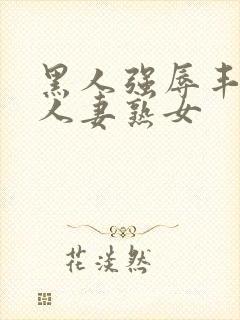 黑人强辱丰
人妻熟女
花淡然